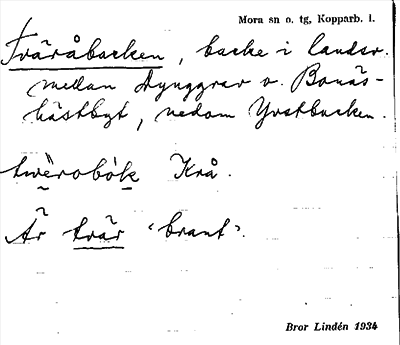 Mora sn o. tg, Kopparb. l.
Tväråbacken, backe i landsv.
mellan Dynggrav o. Bonäs-
hästbyt, nedom Yvstbacken.
twèrobòk Krå.
Är tvär ‘brant’.
Bror Lindén 1934